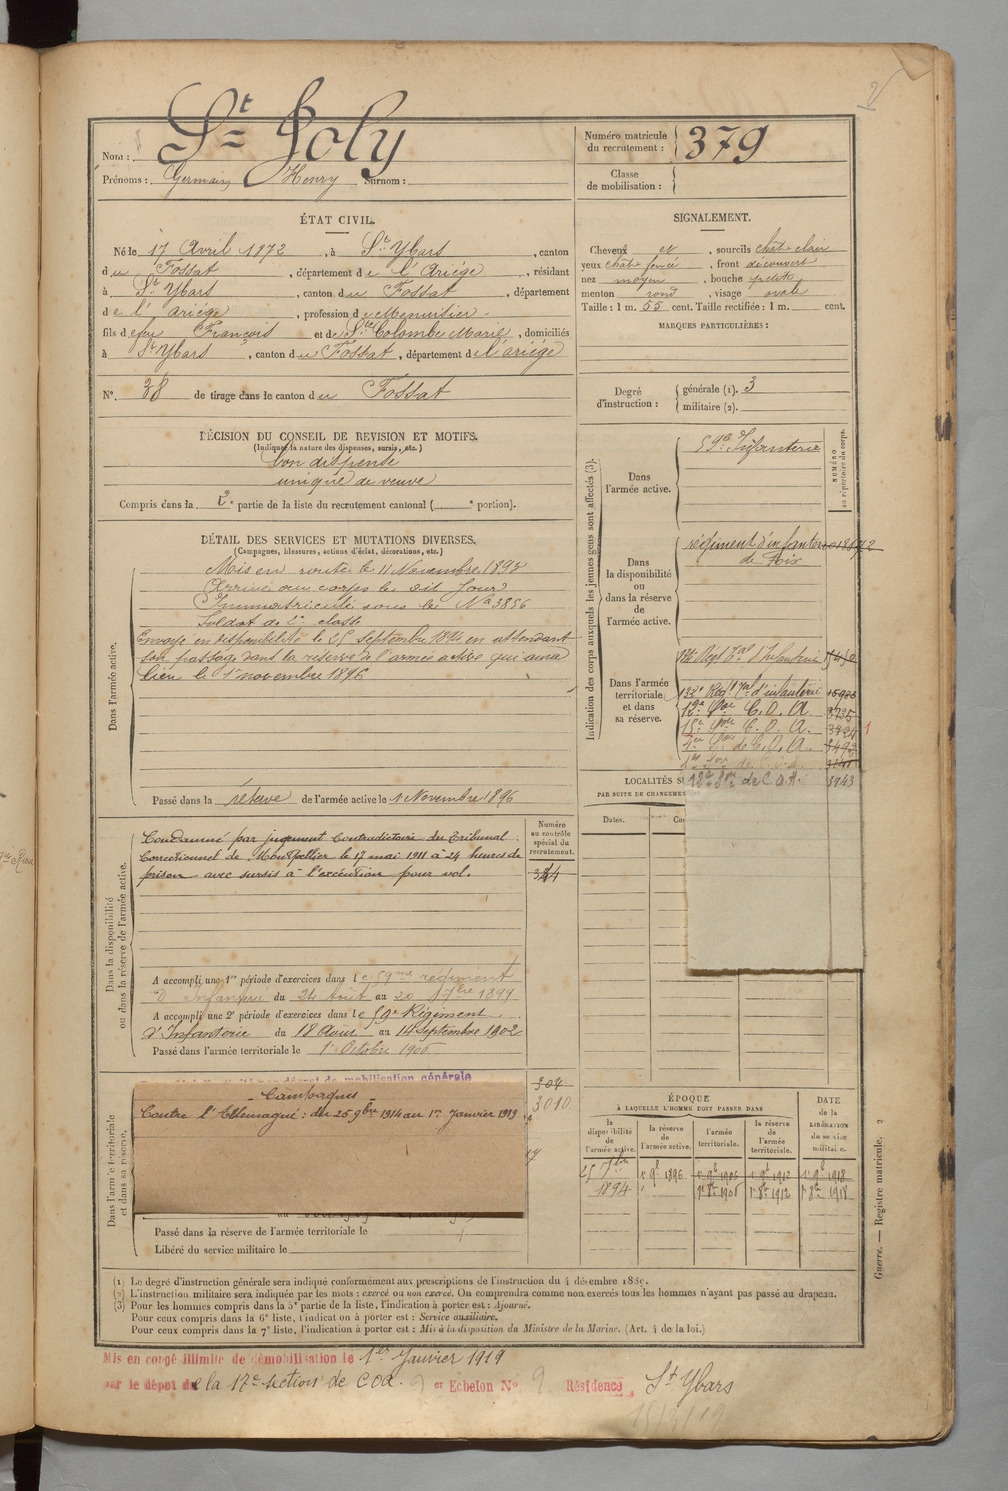 2
Nom : St Joly
Prénoms : Germain, Henry Surnom :
Numéro matricule du recrutement : 379
Classe de mobilisation :
ÉTAT CIVIL.
Né le 17 Avril 1872, à St Ybars, canton
du Fossat, département de l'Ariége, résidant
à St Ybars, canton du Fossat, département
de l'ariége, profession de Menuisier.
fils de feu François et de Ste Colombe Marie, domiciliés
à St Ybars, canton du Fossat, département de l'ariége
N° 38 de tirage dans le canton du Fossat
SIGNALEMENT.
Cheveux et, sourcils chât. clair
yeux chât. foncé, front découvert
nez moyen, bouche petite
menton rond, visage ovale
Taille : 1 m. 55 cent. Taille rectifiée : 1 m. cent.
MARQUES PARTICULIÈRES :
Degré d'instruction : générale (1). 3
militaire (2).
DÉCISION DU CONSEIL DE REVISION ET MOTIFS.
(Indiquer la nature des dispenses, sursis, etc.)
bon dispensé
unique de veuve
Compris dans la 2e partie de la liste du recrutement cantonal ( e portion).
DÉTAIL DES SERVICES ET MUTATIONS DIVERSES.
(Campagnes, blessures, actions d'éclat, décorations, etc.)
Dans l'armée active.
Mis en route le 11 Novembre 1893
Arrivé au corps le dit jour
Immatriculé sous le No 3856
Soldat de 2e classe
Envoyé en disponibilité le 25 septembre 1894 en attendant
son passage dans la réserve de l'armée active qui aura
lieu le 1er novembre 1896
Passé dans la réserve de l'armée active le 1 Novembre 1896
Indication des corps auxquels les jeunes gens sont affectés (3).
NUMÉRO au répertoire du corps.
Dans l'armée active.
59e d'Infanterie
Dans la disponibilité ou dans la réserve de l'armée active.
régiment d'infanterie
de Foix
Dans l'armée territoriale et dans sa réserve.
132e Régt Tal d'infanterie
12e Son C. O. A.
15e Son C. O. A.
de C. O. A.
de C.O.A. 3943
LOCALITÉS
PAR SUITE DE CHANGEMEN
Dates.
Dans la disponibilité ou dans la réserve de l'armée active.
Condamné par jugement contradictoire du Tribunal
Correctionnel de Montpellier le 17 mai 1911 à 24 heures de
prison avec sursis à l'exécution pour vol.
Numéro au contrôle spécial du recrutement.
A accompli une 1re période d'exercices dans le 59me régiment
d'infanterie du 24 Août au 20 7bre 1899
A accompli une 2e période d'exercices dans le 59e Régiment
d'Infanterie du 18 Août au 14 Septembre 1902
Passé dans l'armée territoriale le 1er Octobre 1906
Dans l'armée territoriale et dans sa réserve.
mobilisation générale
Campagnes
Contre l'Allemagne : du 25 9bre 1914 au 1er Janvier 1919
304
3010
Passé dans la réserve de l'armée territoriale le
Libéré du service militaire le
ÉPOQUE
À LAQUELLE L'HOMME DOIT PASSER DANS
DATE de la LIBÉRATION du service militaire.
la disponibilité de l'armée active.
la réserve de l'armée active.
l'armée territoriale.
la réserve de l'armée territoriale.
25 7bre 1894
1er 9bre 1896
1er 8bre 1906
1er 8bre 1912
1er 8bre 1918
Guerre. — Registre matricule. 2
(1) Le degré d'instruction générale sera indiqué conformément aux prescriptions de l'instruction du 4 décembre 1889.
(2) L'instruction militaire sera indiquée par les mots : exercé ou non exercé. On comprendra comme non exercés tous les hommes n'ayant pas passé au drapeau.
(3) Pour les hommes compris dans la 5e partie de la liste, l'indication à porter est : Ajourné.
Pour ceux compris dans la 6e liste, l'indication à porter est : Service auxiliaire.
Pour ceux compris dans la 7e liste, l'indication à porter est : Mis à la disposition du Ministre de la Marine. (Art. 4 de la loi.)
Mis en congé illimité de démobilisation le 1er Janvier 1919
par le dépôt de la 17e section de COA. et Echelon N° 9 Résidence St Ybars